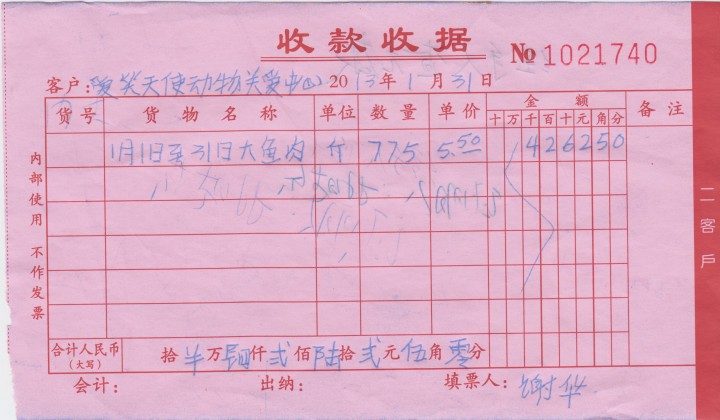 收款收据 № 1021740
客户：爱笑天使动物关爱中心 2013年1月31日
货号 货物名称 单位 数量 单价 金额 备注
十万千百十元角分
1月1日至31日大鱼肉 斤 775 5.50 426250
合计人民币(大写) 拾 万 肆仟 贰佰 陆拾 贰元 伍角 零分
会计： 出纳： 填票人：谢华
内部使用 不作发票
二客户